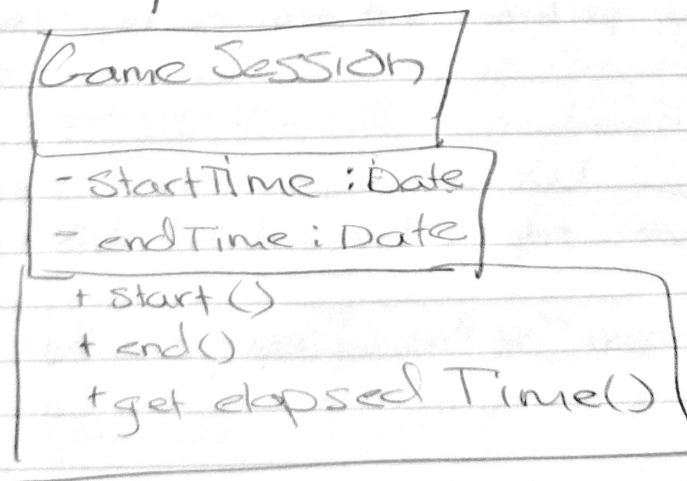 Game Session
- startTime : Date
- endTime : Date
+ start()
+ end()
+ get elapsed Time()